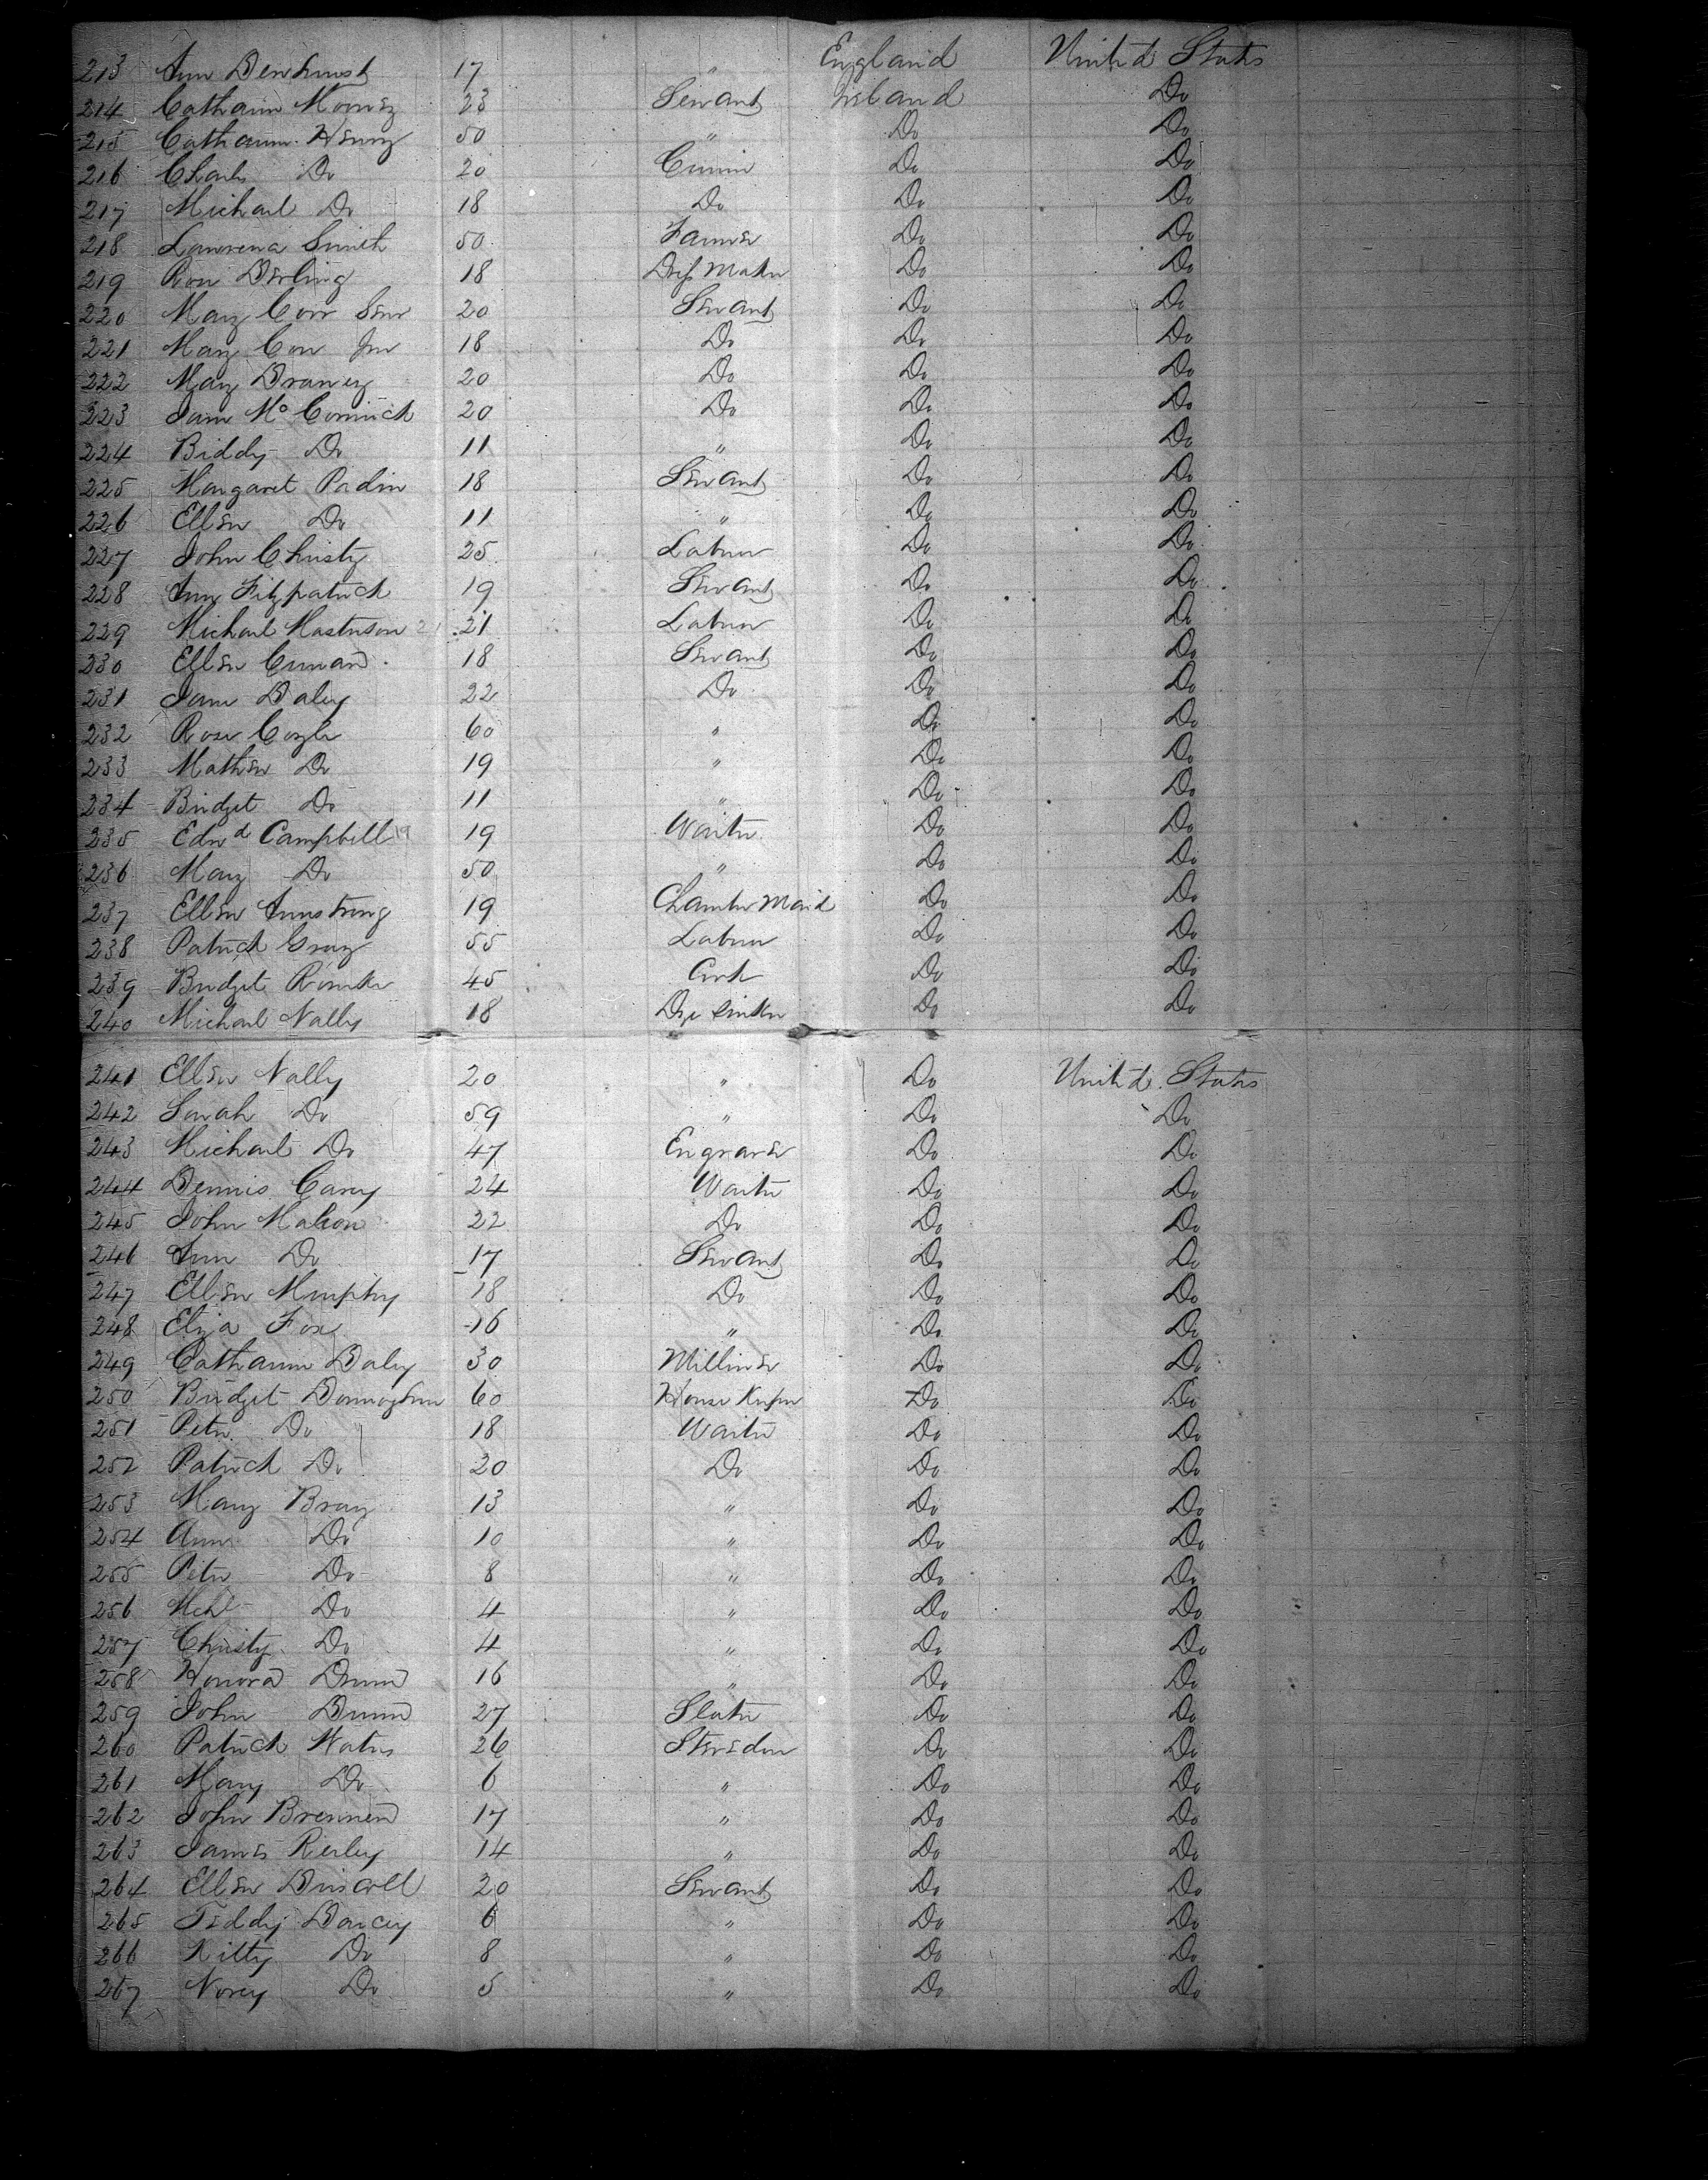 213 Ann Denhurst 17 " England United States
214 Catharine Morris 23 Servant Ireland Do
215 Catharine Henry 50 " Do Do
216 Charles Do 20 Do Do
217 Michael Do 18 Do Do Do
218 Lawrence Smith 50 Farmer Do Do
219 Rose Derling 18 Dress Maker Do Do
220 Mary Corr Senr 20 Servant Do Do
221 Mary Corr Jnr 18 Do Do Do
222 Mary Draney 20 Do Do Do
223 Jane McCormick 20 Do Do Do
224 Biddy Do 11 " Do Do
225 Margaret Padin 18 Servant Do Do
226 Ellen Do 11 " Do Do
227 John Christy 25 Labourer Do Do
228 Ann Fitzpatrick 19 Servant Do Do
229 Michael Masterson 21 21 Labourer Do Do
230 Ellen Cunan 18 Servant Do Do
231 Jane Daley 22 Do Do Do
232 Rose Coyle 60 " Do Do
233 Mathew Do 19 " Do Do
234 Bridget Do 11 " Do Do
235 Edwd Campbell 19 19 Waiter Do Do
236 Mary Do 50 " Do Do
237 Ellen Armstrong 19 Chamber Maid Do Do
238 Patrick Gray 55 Labourer Do Do
239 Bridget 45 Cook Do Do
240 Michael Nally 18 Dye sinker Do Do
241 Ellen Nally 20 " Do United States
242 Sarah Do 59 " Do Do
243 Michael Do 47 Engraver Do Do
244 Dennis Carey 24 Waiter Do Do
245 John Mahon 22 Do Do Do
246 Ann Do 17 Servant Do Do
247 Ellen Murphy 18 Do Do Do
248 Eliza Fox 16 " Do Do
249 Catharine Daley 30 Milliner Do Do
250 Bridget Donnoghue 60 House Keeper Do Do
251 Peter Do 18 Waiter Do Do
252 Patrick Do 20 Do Do Do
253 Mary Bray 13 " Do Do
254 Ann Do 10 " Do Do
255 Peter Do 8 " Do Do
256 Michl Do 4 " Do Do
257 Christy Do 4 " Do Do
258 Honora Dunn 16 " Do Do
259 John Dunn 27 Slater Do Do
260 Patrick Waters 26 Stevedore Do Do
261 Mary Do 6 " Do Do
262 John Brennen 17 " Do Do
263 James Reiley 14 " Do Do
264 Ellen Driscoll 20 Servant Do Do
265 Teddy Darcey 6 " Do Do
266 Kitty Do 8 " Do Do
267 Norey Do 5 " Do Do